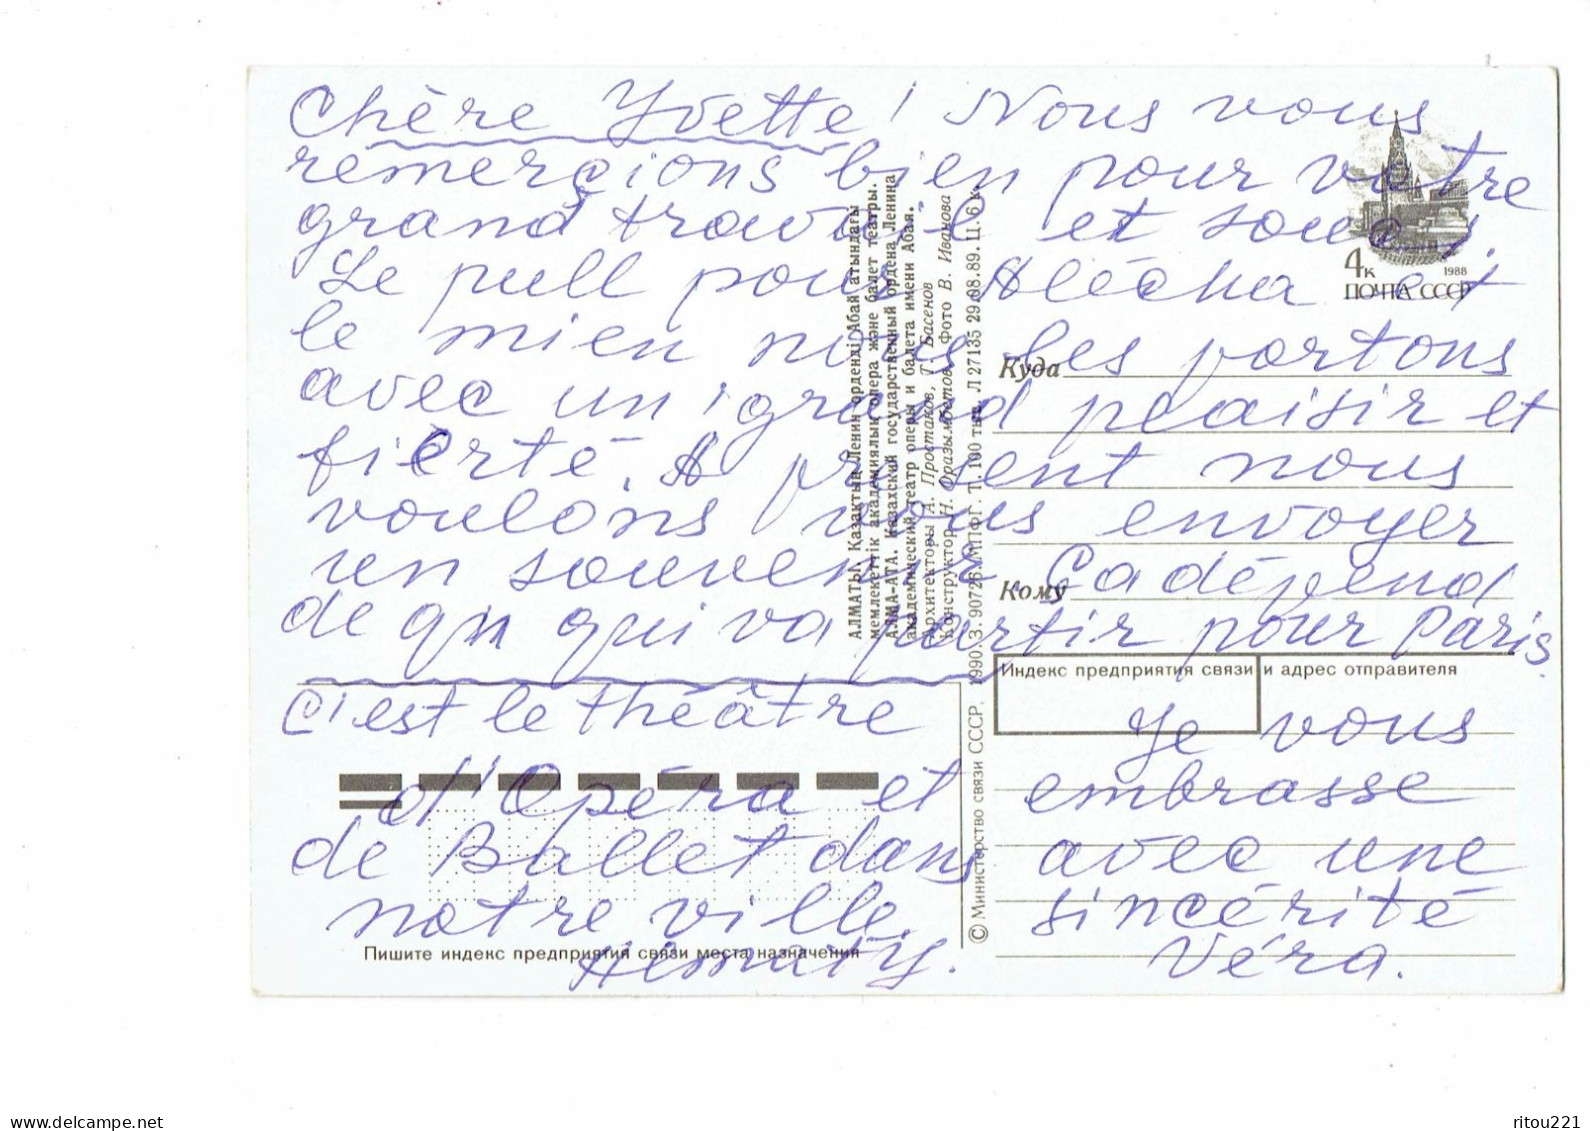 Chère Yvette! Nous vous
remerçions bien pour votre
grand travail et souci.
Le pull pour Alécha et
le mien nous les portons
avec un grand plaisir et
fierté. A présent nous
voulons vous envoyer
un souvenir. Ça dépend
de qui va partir pour Paris.
C'est le théâtre
d'Opéra et
de Ballet dans
notre ville
Almaty.
Je vous
embrasse
avec une
sincérité
Véra.
4к
1988
ПОЧТА СССР
Куда
Кому
Индекс предприятия связи и адрес отправителя
Пишите индекс предприятия связи места назначения
АЛМАТЫ. Қазақтың Ленин орденді Абай атындағы
мемлекеттік академиялық опера және балет театры.
АЛМА-АТА. Казахский государственный ордена Ленина
академический театр оперы и балета имени Абая.
Архитекторы А. Простаков, Т. Басенов
Конструктор Н. Оразымбетов Фото В. Иванова
© Министерство связи СССР. 1990. З. 90726. МПФГ. Т. 100 тыс. Л 27135 29.08.89. Ц. 6 к.
www.delcampe.net
ritou221